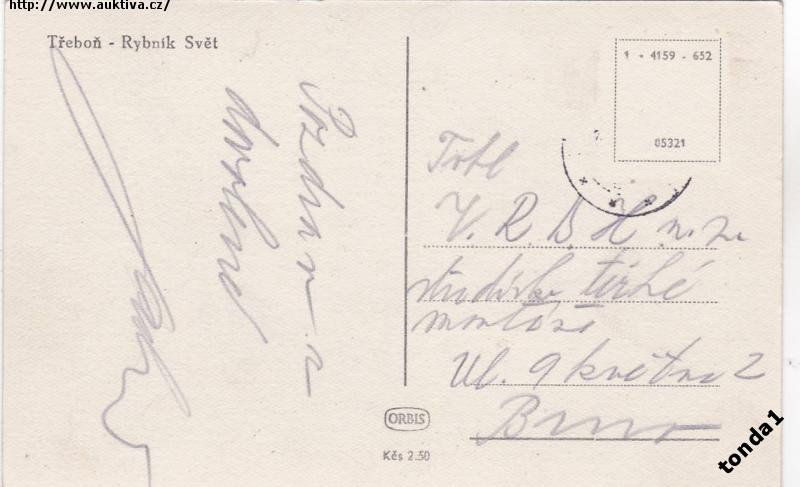 http://www.auktiva.cz/
Třeboň - Rybník Svět
1 - 4159 - 652
05321
Pozdrav z
dovolené
V. R. D. H. n. z.
těžké
montáže
Ul. 9 května 2
Brno
ORBIS
Kčs 2.50
tonda1